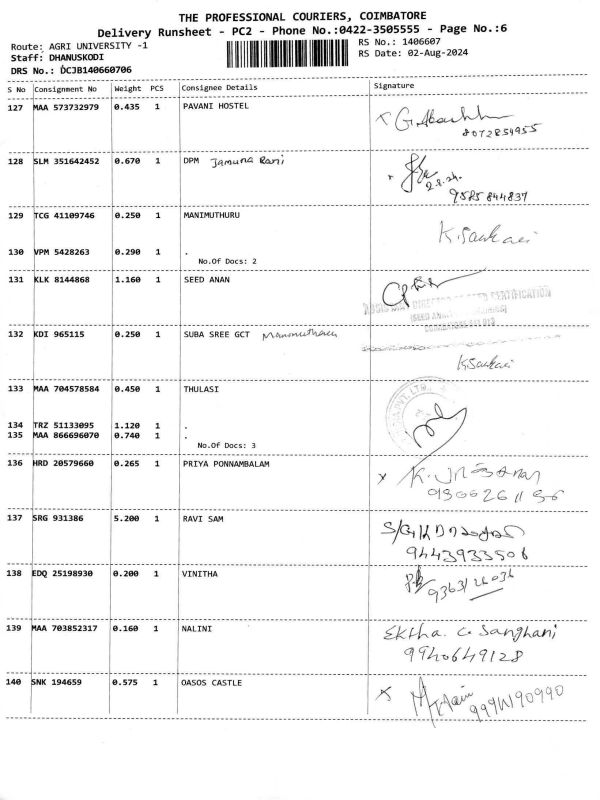 THE PROFESSIONAL COURIERS, COIMBATORE
Delivery Runsheet - PC2 - Phone No.:0422-3505555 - Page No.:6
Route: AGRI UNIVERSITY -1 RS No.: 1406607
Staff: DHANUSKODI RS Date: 02-Aug-2024
DRS No.: DCJB140660706
S No Consignment No Weight PCS Consignee Details Signature
127 MAA 573732979 0.435 1 PAVANI HOSTEL
8072859955
128 SLM 351642452 0.670 1 DPM Jamuna Rani
2.8.24.
9585844837
129 TCG 41109746 0.250 1 MANIMUTHURU
K.Sankari
130 VPM 5428263 0.290 1 .
No.Of Docs: 2
131 KLK 8144868 1.160 1 SEED ANAN
132 KDI 965115 0.250 1 SUBA SREE GCT
K.Sankari
133 MAA 704578584 0.450 1 THULASI
134 TRZ 51133095 1.120 1 .
135 MAA 866696070 0.740 1 .
No.Of Docs: 3
136 HRD 20579660 0.265 1 PRIYA PONNAMBALAM
137 SRG 931386 5.200 1 RAVI SAM
9443933506
138 EDQ 25198930 0.200 1 VINITHA
9363126036
139 MAA 703852317 0.160 1 NALINI
Ektha. C. Sanghani
9940649128
140 SNK 194659 0.575 1 OASOS CASTLE